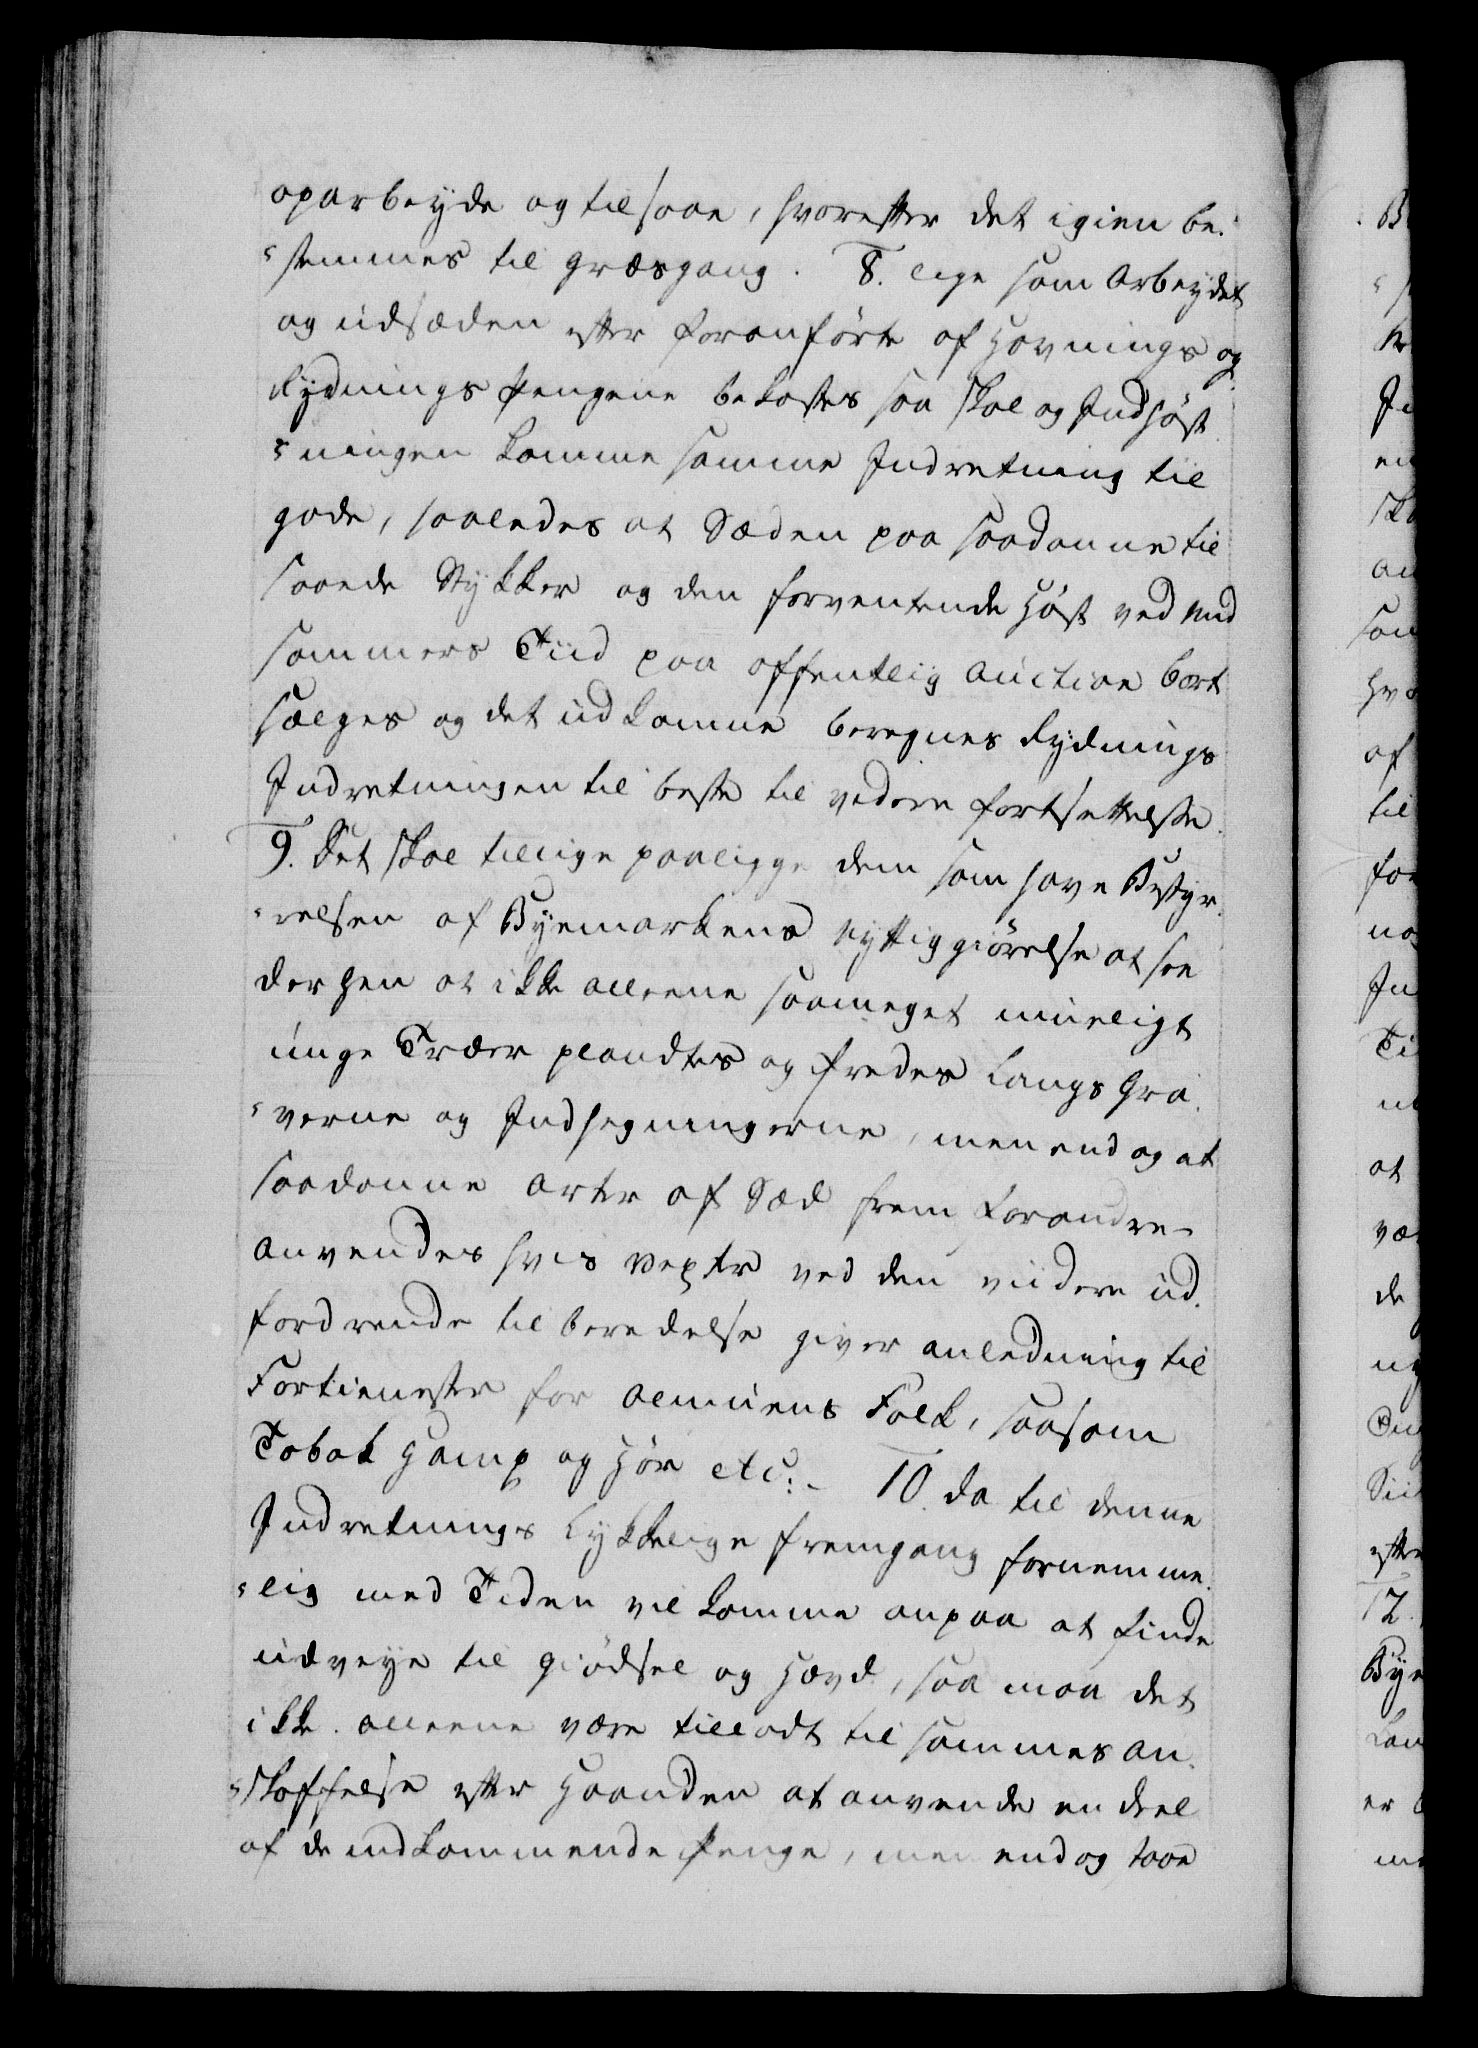 oparbeyde og tilsaae, hvorefter det igien be¬
"stemmes til græsgang. 8. lige som Arbeydet
og udsæden efter foranførte af Havnings og
Rydnings Pengene bekostes saa skal og Indhøst
"ningen komme samme Indretning til
gode, saaledes at Sæden paa saadanne til
saaede Stykker og den forventende Høst ved mid
sommers Tiid paa offentlig Auction bort
sælges og det udkomne beregnes Rydnings
Indretningen til beste til vedere fortsettelse.
9. Det skal tillige paaligge dem som have Bestyr¬
"relsen af Byemarkens nyttiggiørelse at see
derhen at ikke alleene saameget mueligt
unge Træer plandtes og fredes langs Gra¬
"verne og Indhegningerne, men end og at
saadanne Arter af Sæd frem for andre
anvendes hvis Vexter ved den viidere ud¬
fordrende tilberedelse giver anledning til
Fortieneste for Almuens Folk, saasom
Tobak Hamp og Hør etc:- 10. da til denne
Indretnings lykkelige fremgang fornemme¬
"lig med Tiden vil komme anpaa at finde
udveye til giødsel og Hævd, saa maa det
ikke alleene være tilladt til sammes an¬
"skaffelse efter Haanden at anvende en deel
af de indkommende Penge, men end og saae